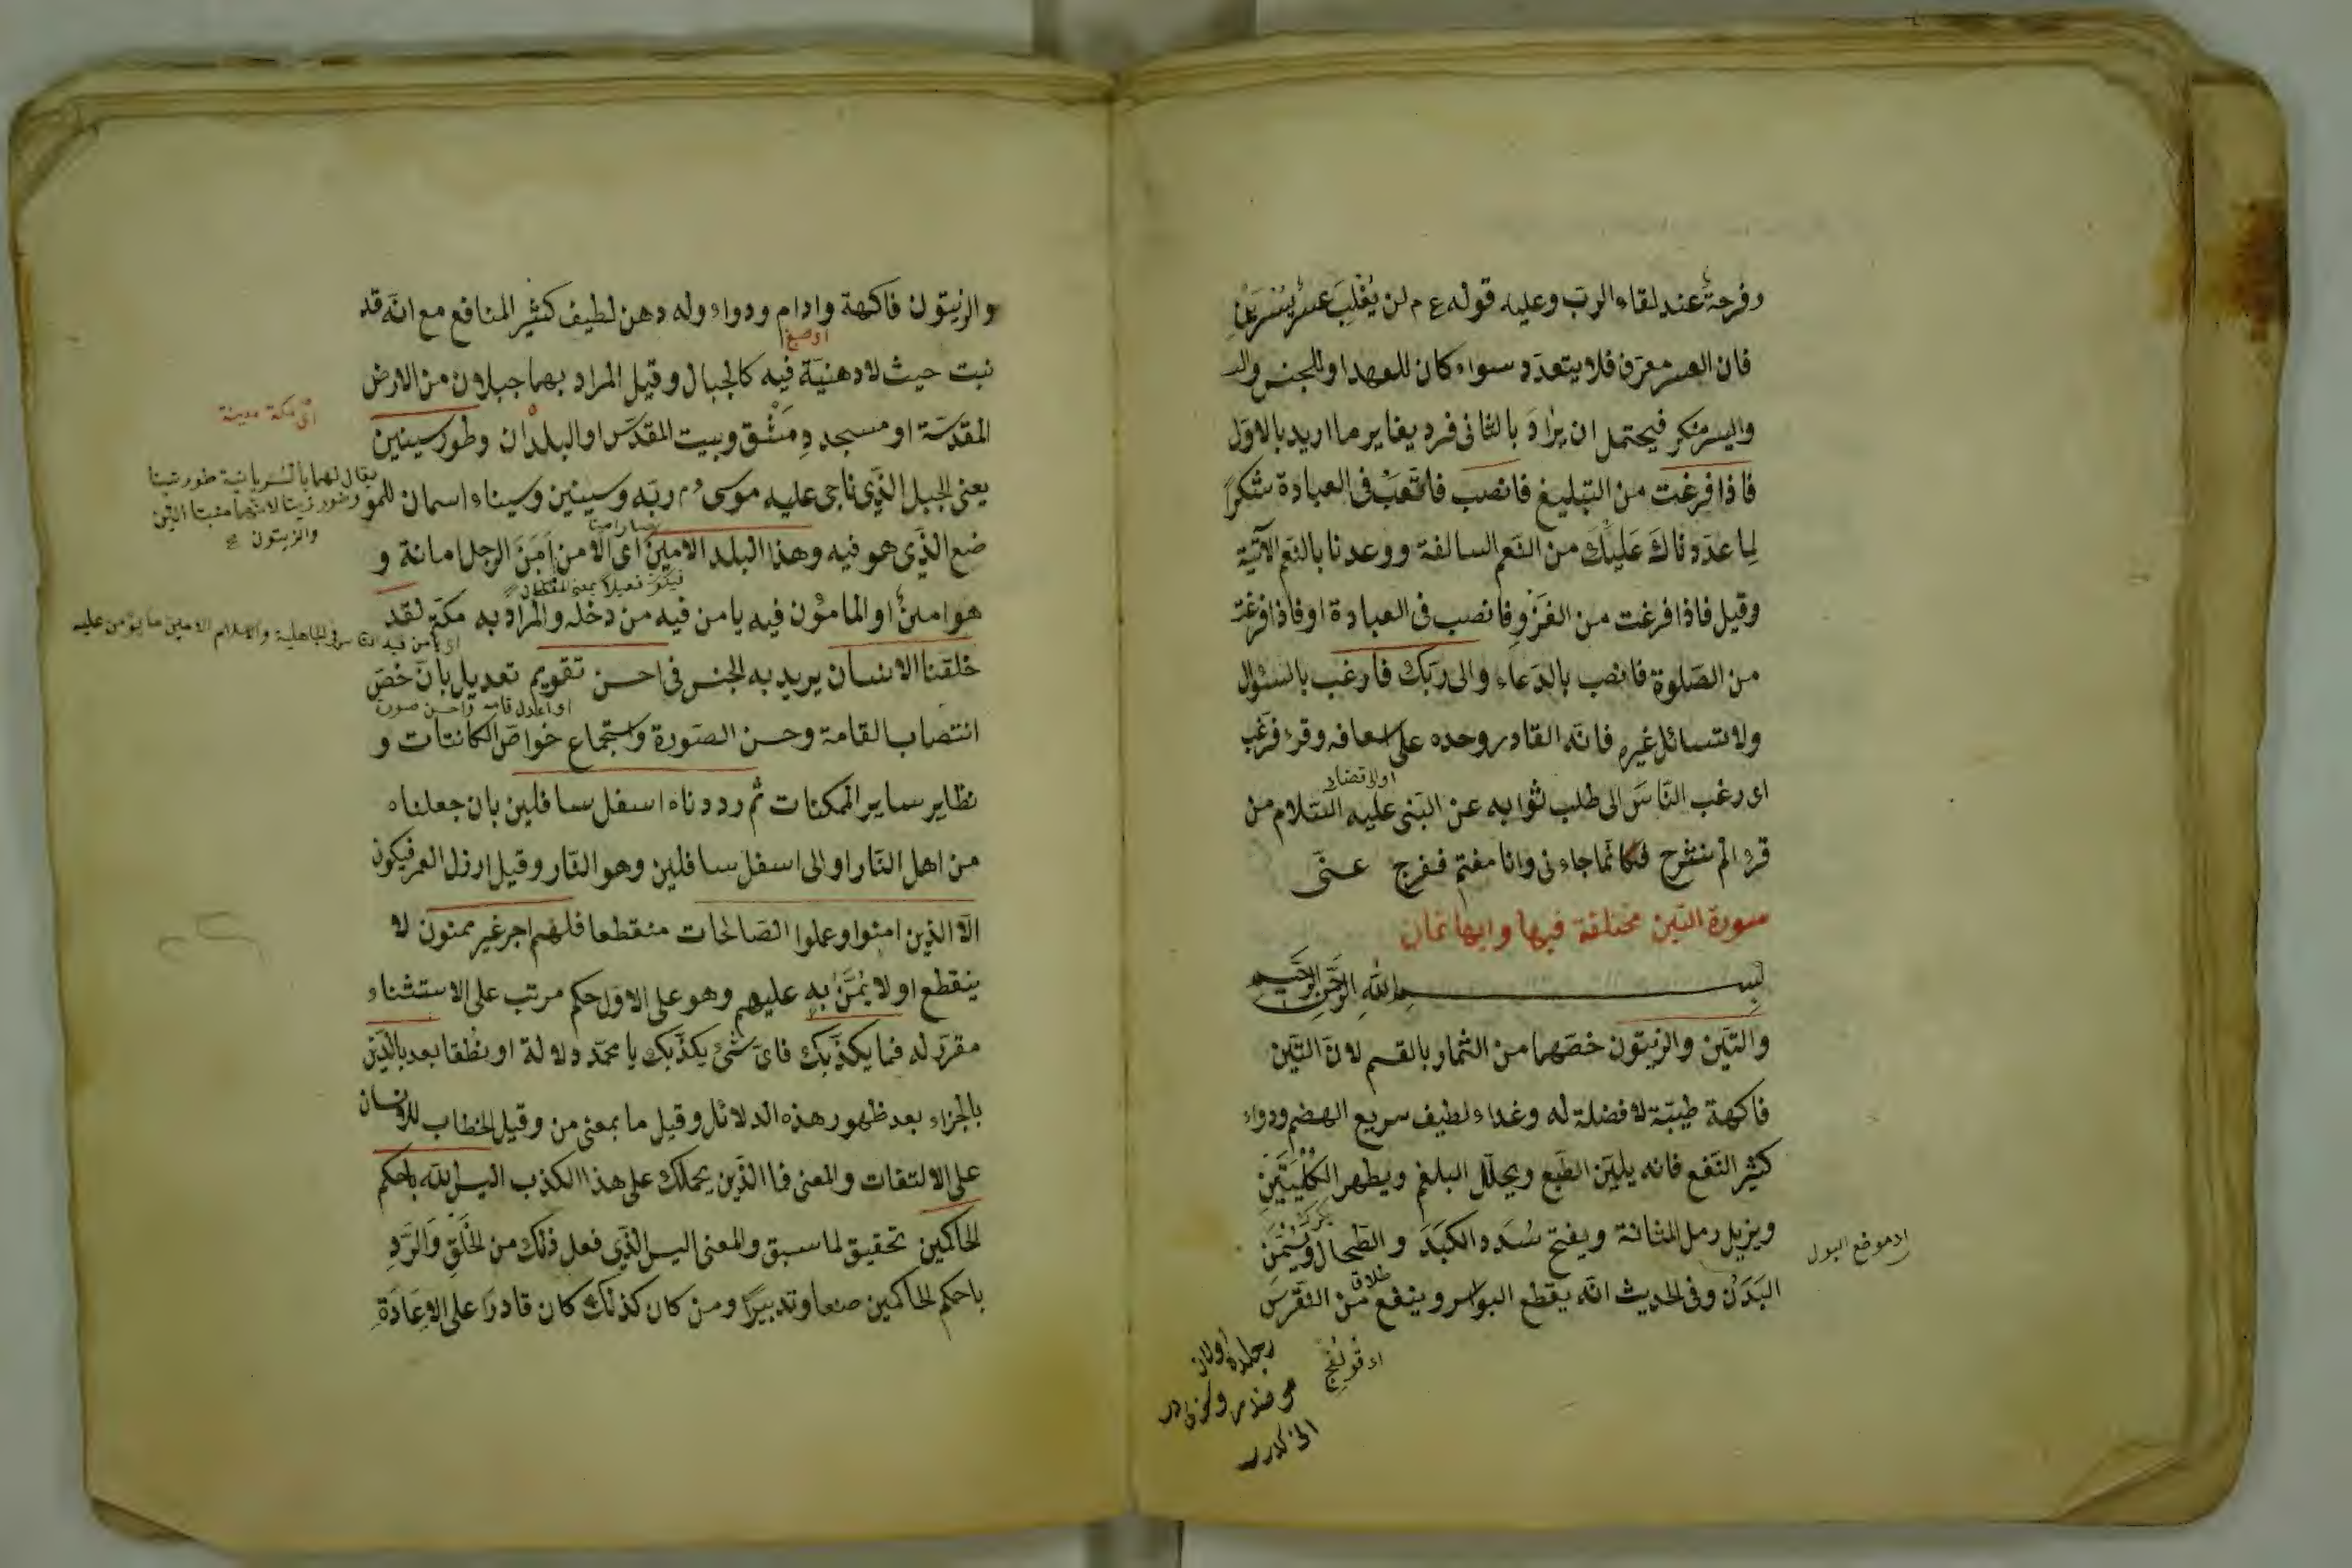 وفرحة عند لقاء الرب وعليه قوله ع م لن يغلب عسر يسرين
فان العسر معرف فلا يتعدد سواء كان للعهد او للجنس وال
واليسر منكر فيحتمل ان يراد بالثانى فرد يغاير ما اريد بالاول
فاذا فرغت من التبليغ فانصب فاتعب فى العبادة شكرا
لما عددناك عليك من النعم السالفة ووعدنا بالنعم الآتية
وقيل فاذا فرغت من الغزو فانصب فى العبادة او فاذا فرغت
من الصلوة فانصب بالدعاء والى ربك فارغب بالسئوال
ولا تسائل غيره فانه القادر وحده على اسعافه وقرء فرغب
اى رغب الناس الى طلب ثوابه عن النبى عليه السلام من
قرء الم نشرح فكانما جاءنى وانا مغتم ففرج عنى
سورة التين مختلفة فيها وايها ثمان
بسم الله الرحمن الرحيم
والتين والزيتون خصهما من الثمار بالقسم لان التين
فاكهة طيبة لا فضلة له وغداء لطيف سريع الهضم ودواء
كثير النفع فانه يلين الطبع ويحلل البلغم ويطهر الكليتين
ويزيل رمل المثانة ويفتح سدده الكبد و الطحال ويسمن
ا د موضع البول
البدن وفى الحديث انه يقطع البواسر وينفع من النقرس
والزيتون فاكهة وادام ودواء وله دهن لطيف كثير المنافع مع انه قد
او صبغ
نبت حيث لا دهنية فيه كالجبال وقيل المراد بهما جبلان من الارض
المقدسة او مسجد دمشق وبيت المقدس او البلدان وطور سينين
اى مكة مدينة
يعنى الجبل الذى ناجى عليه موسى ع م ربه وسينين وسيناء اسمان للمو
يقال لهما بالسريانية طور تينا
وطور زيتا لانهما منبتا التين
والزيتون
ضع الذى هو فيه وهذا البلد الامين اى الامن امن الرجل امانة و
هو امين او المامون فيه يامن فيه من دخله والمراد به مكة لقد
خلقنا الانسان يريد به الجنس فى احسن تقويم تعديل بان خص
انتصاب القامة وحسن الصورة واستجماع خواص الكائنات و
نظاير ساير الممكنات ثم رددناه اسفل سافلين بان جعلناه
من اهل النار او الى اسفل سافلين وهو النار وقيل ارذل العمر فيكون
الا الذين امنوا وعملوا الصالحات منقطعا فلهم اجر غير ممنون لا
ينقطع او لا يمن به عليهم وهو على الاول حكم مرتب على الاستثناء
مقرر له فما يكذبك فاى شئ يكذبك يا محمد دلالة او نطقا بعد بالدين
بالجزاء بعد ظهور هذه الدلائل وقيل ما بمعنى من وقيل الخطاب للانسان
على الالتفات والمعنى فا الذين يحملك على هذا الكذب اليس الله باحكم
الحاكمين تحقيق لما سبق والمعنى اليس الذى فعل ذلك من الخلق والرد
باحكم الحاكمين صنعا وتدبيرا ومن كان كذلك كان قادرا على الاعادة